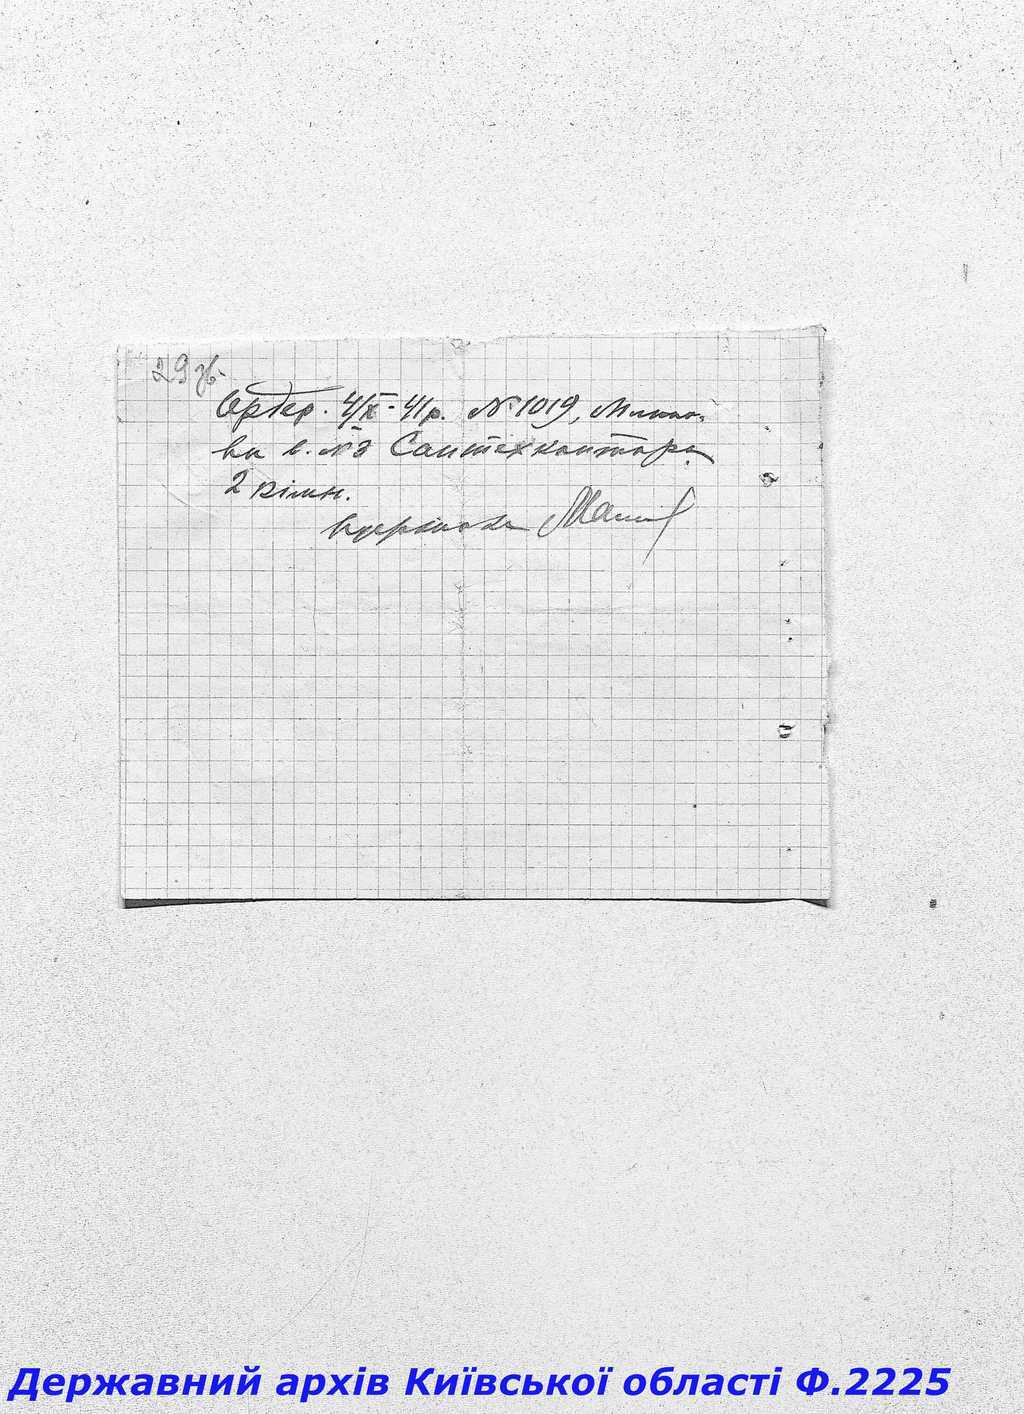 29 зв
Ордер. 4/X-41р. № 1019,
в. № 3 Сантехконтора
2 кімн.
одержала
Державний архів Київської області Ф.2225